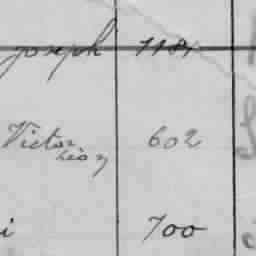 Joseph 1181
Victor 602
Léon
i 700